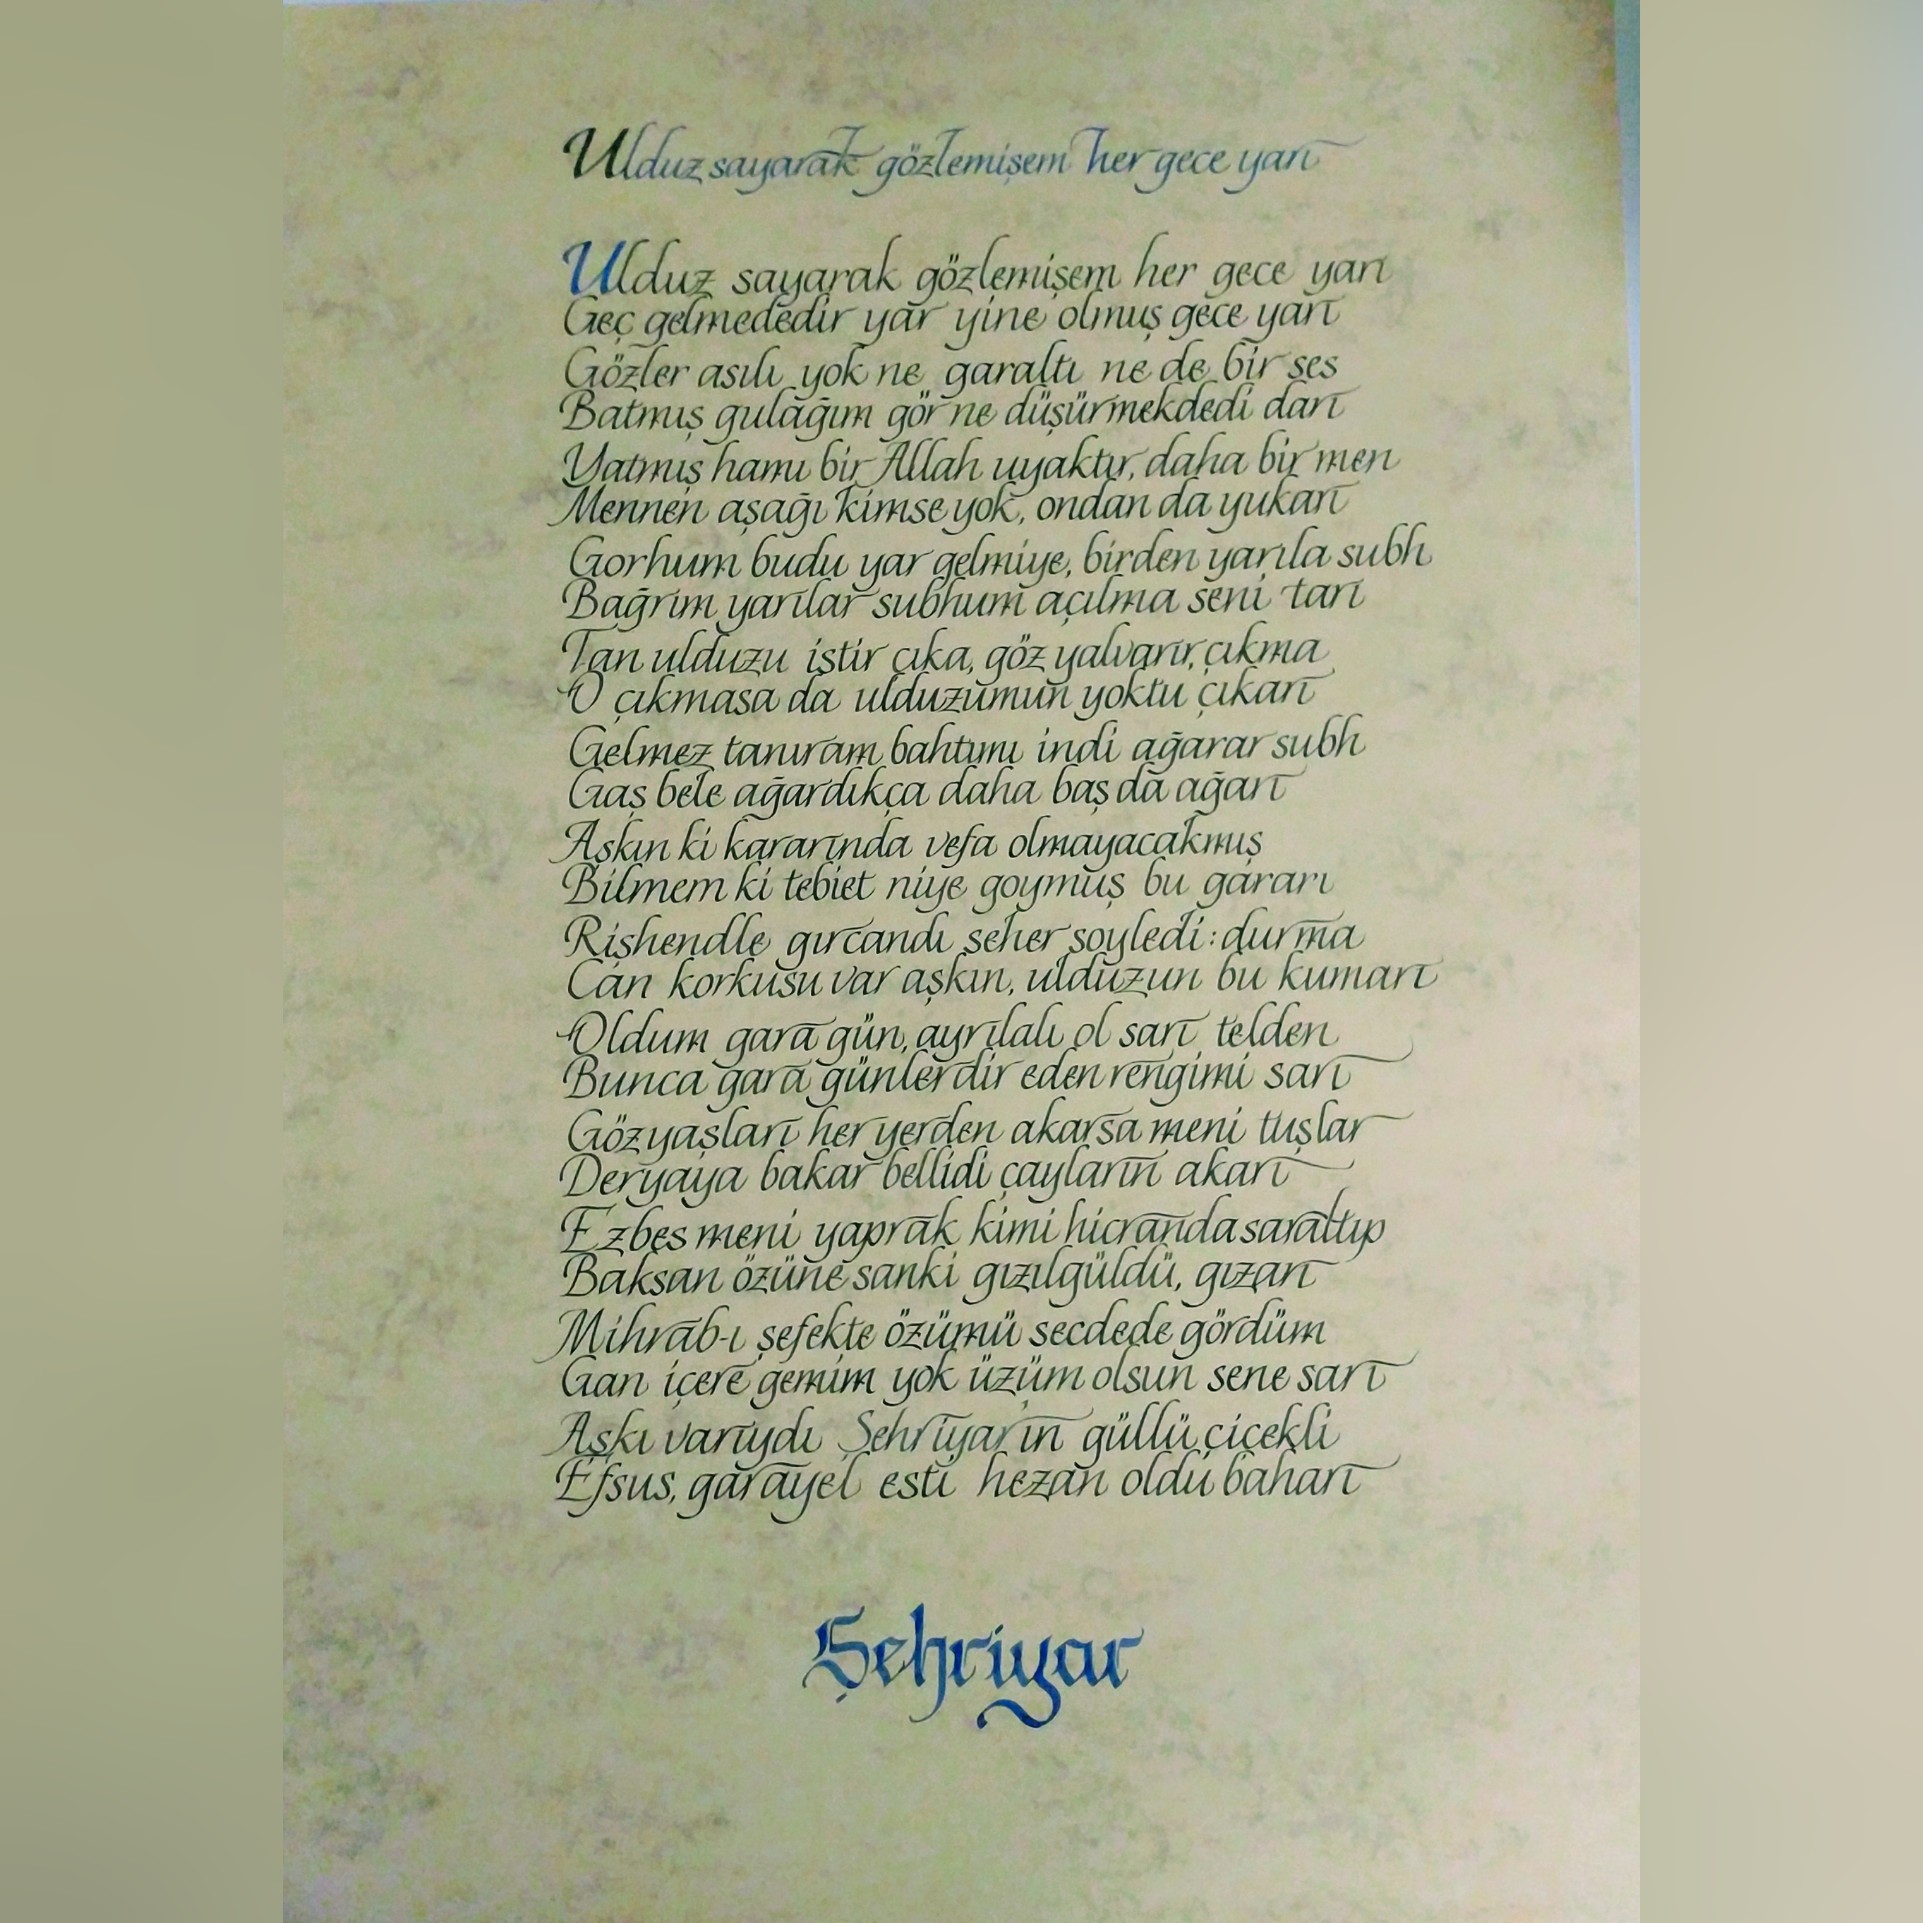 Ulduz sayarak gözlemişem her gece yarı
Ulduz sayarak gözlemişem her gece yarı
Geç gelmededir yar yine olmuş gece yarı
Gözler asılı yok ne garaltı ne de bir ses
Batmış gulağım gör ne düşürmekdedi darı
Yatmış hamı bir Allah uyaktır, daha bir men
Mennen aşağı kimse yok, ondan da yukarı
Gorhum budu yar gelmiye, birden yarıla subh
Bağrım yarılar subhum açılma seni tarı
Tan ulduzu istir çıka, göz yalvarır, çıkma
O çıkmasa da ulduzumun yoktu çıkarı
Gelmez tanıram bahtımı indi ağarar subh
Gaş bele ağardıkça daha baş da ağarı
Aşkın ki kararında vefa olmayacakmış
Bilmem ki tebiet niye goymuş bu gararı
Rişhendle gırcandı seher soyledi: durma
Can korkusu var aşkın, ulduzun bu kumarı
Oldum gara gün, ayrılalı ol sarı telden
Bunca gara günlerdir eden rengimi sarı
Gözyaşları her yerden akarsa meni tuşlar
Deryaya bakar bellidi çayların akarı
Ezbes meni yaprak kimi hicranda saraltıp
Baksan özüne sanki gızılgüldü, gızarı
Mihrab-ı şefekte özümü secdede gördüm
Gan içere gemim yok üzüm olsun sene sarı
Aşkı varıydı Şehriyarın güllü çiçekli
Efsus, garayel esti hezan oldu baharı
Şehriyar